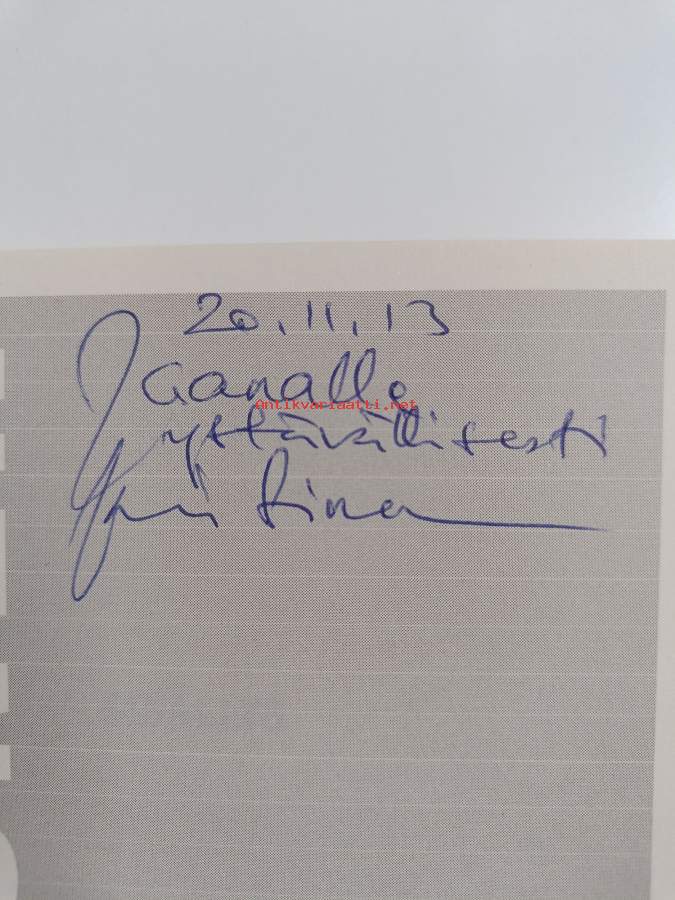 20.11.13
Jaanalle
Antikvariaatti.net
ystävällisesti